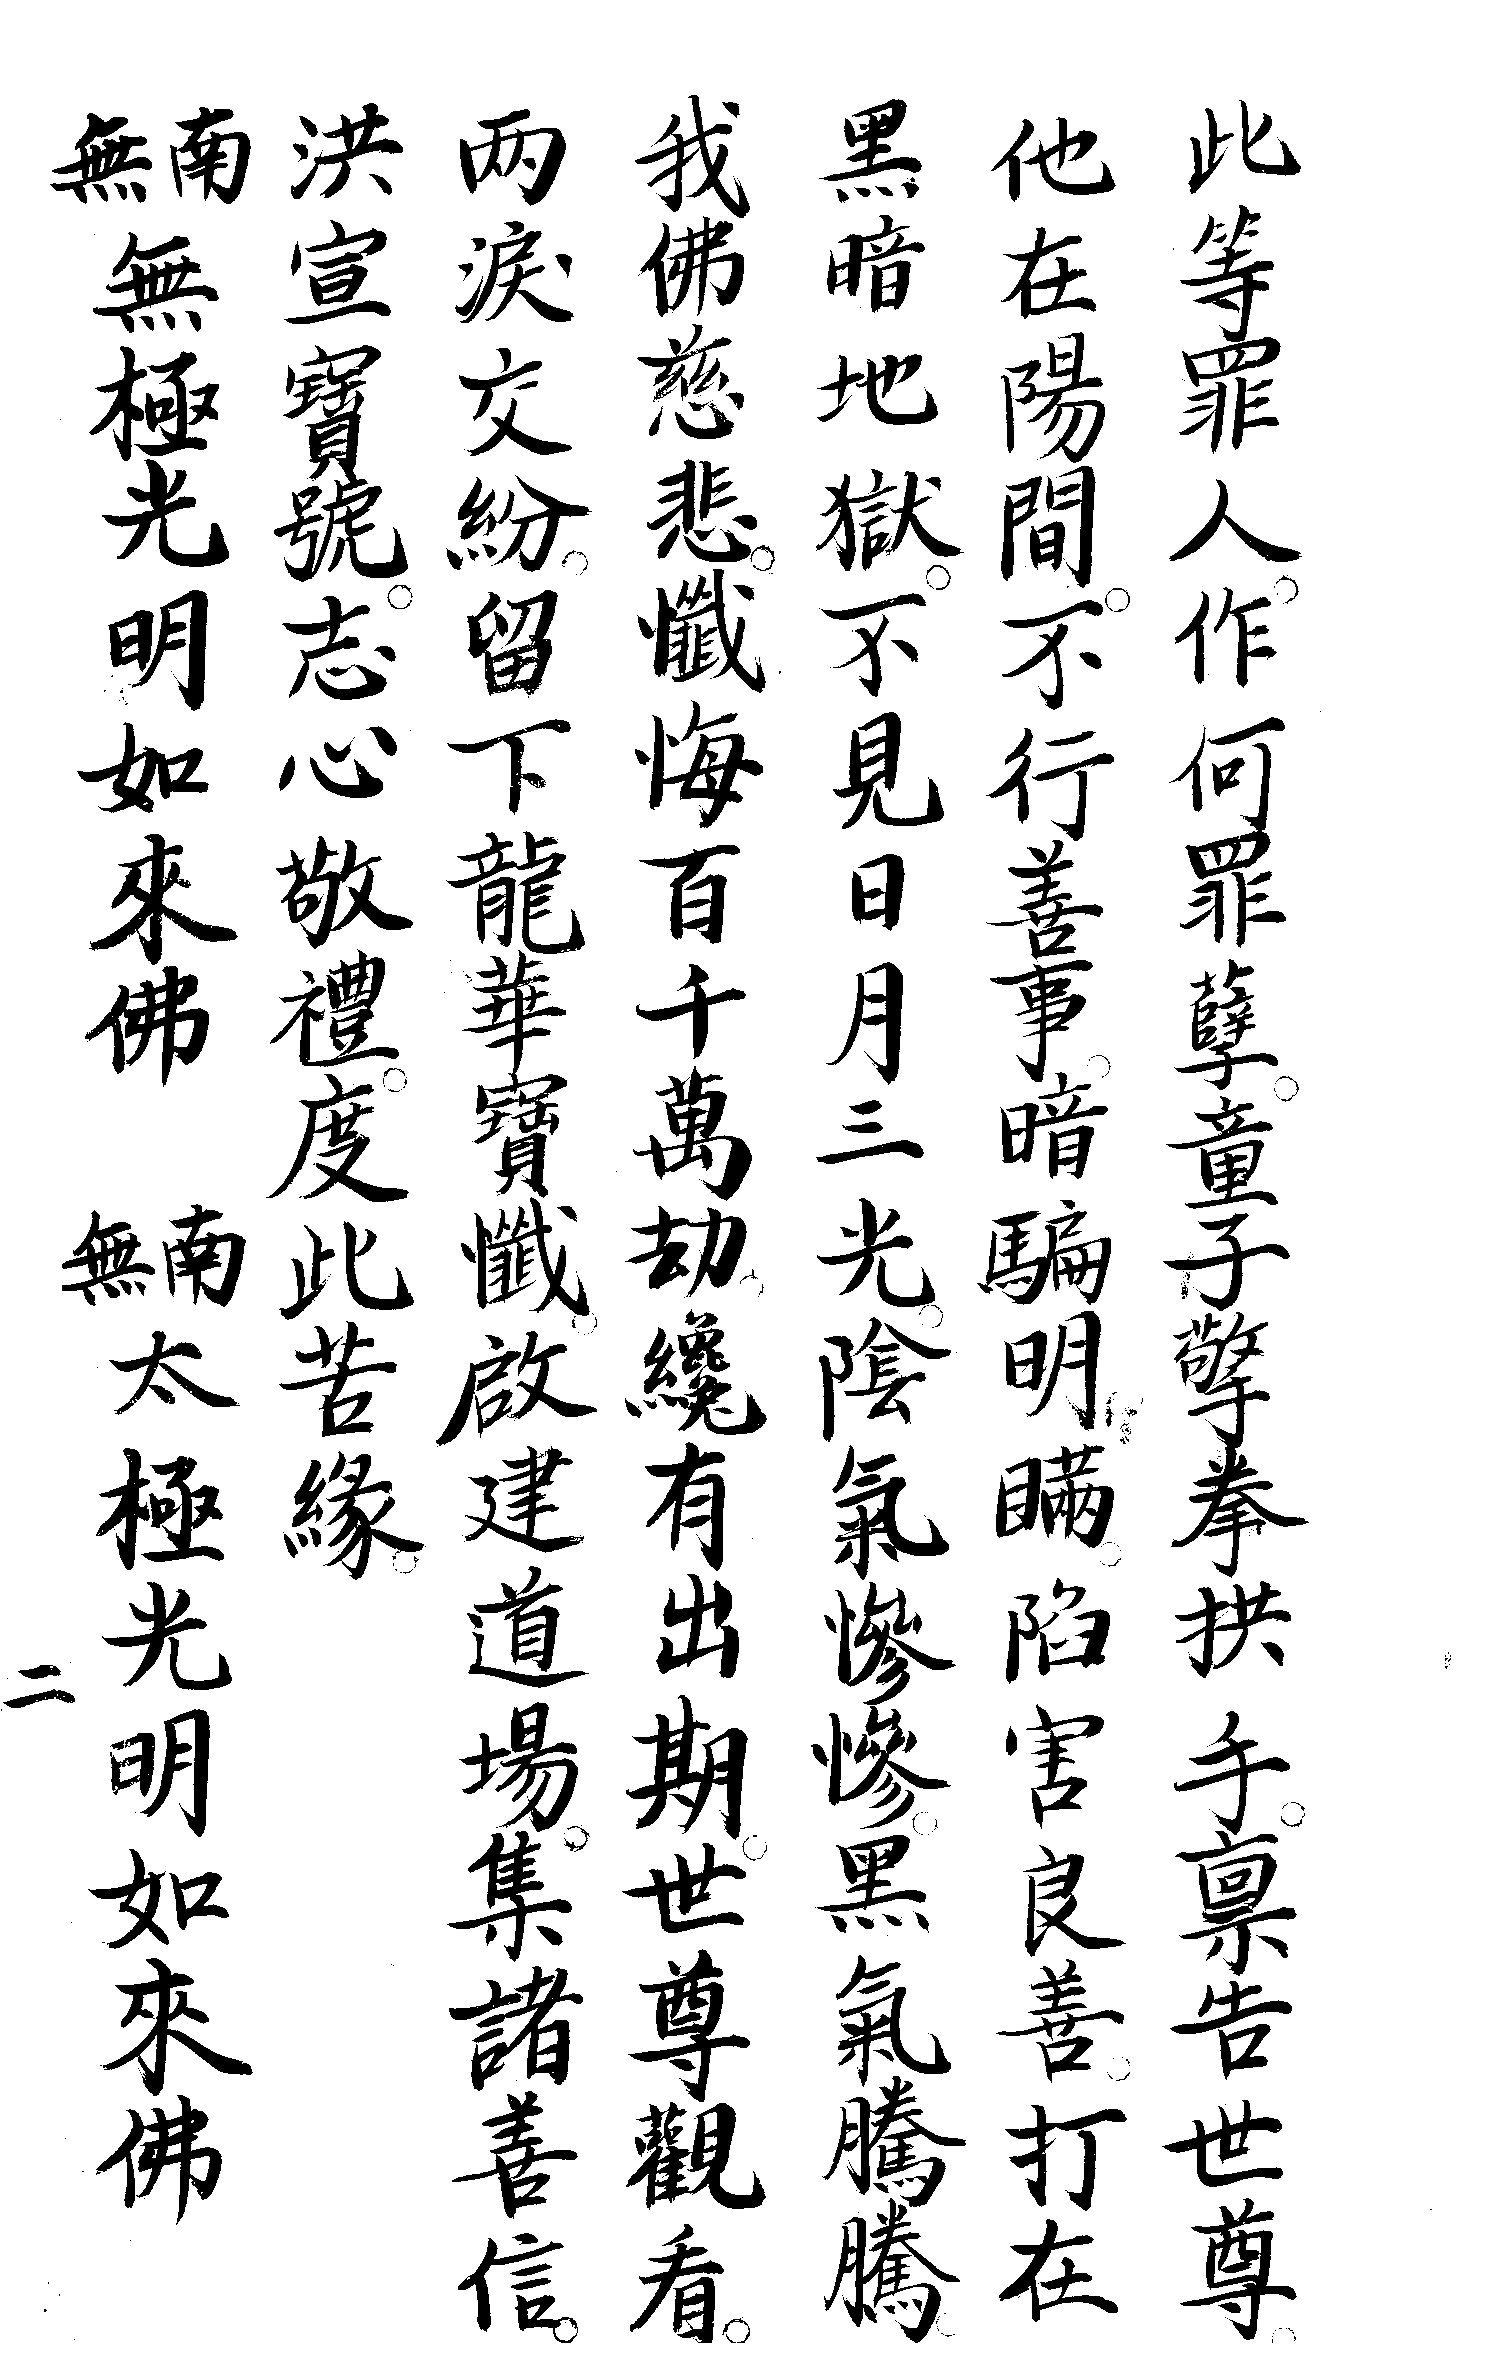 此等罪人。作何罪孽。童子擎拳拱手。禀告世尊。
他在陽間。不行善事。暗騙明瞞。陷害良善。打在
黑暗地獄。不見日月三光。陰氣慘慘。黑氣騰騰。
我佛慈悲。懺悔百千萬劫。纔有出期。世尊觀看。
两淚交紛。留下龍華寶懺。啟建道場。集諸善信。
洪宣寶號。志心敬禮。度此苦緣。
南無無極光明如來佛　南無太極光明如來佛
二